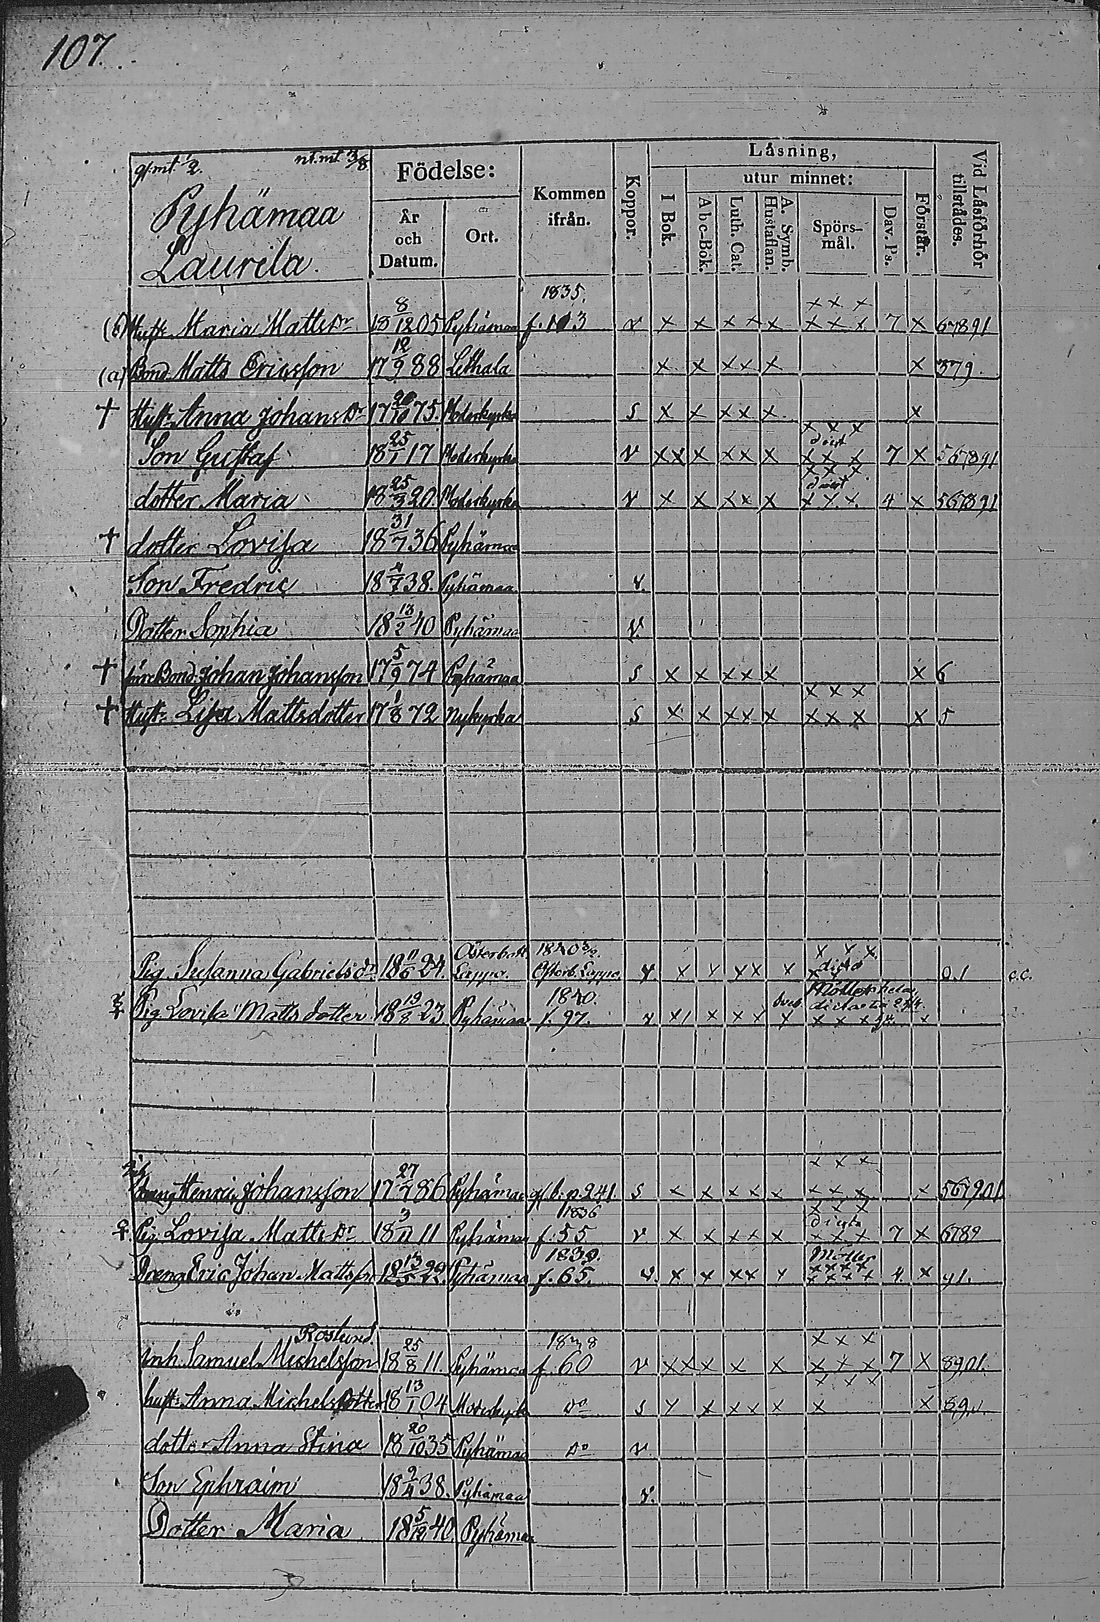 107.
gl. mt. 1/2. nt. mt. 3/8
Pyhämaa
Laurila.
Födelse:
År och Datum.
Ort.
Kommen ifrån.
Koppor.
Låsning,
I Bok.
utur minnet:
A b c-Bok.
Luth. Cat.
A. Symb. Hustaflan.
Spörsmål.
Dav. Ps.
Förstår.
Vid Låsförhör tillstädes.
1835.
(b) Hust. Maria Mattsdr 18 8/12 05 Pyhämaa f. 103 v x x x x x x x x x x x 7 x 67891
(a) Bond Matts Ericsson 17 12/9 88 Lethala x x x x x x x 379.
† Hust. Anna Johansdr 17 20/10 75. Moderkyrka s x x x x x x
Son Gustaf 18 25/1 17 Moderkyrka v x x x x x x x x x 7 x 567891
dotter Maria 18 25/3 20 Moderkyrka v x x x x x x x x 4 x 567891
† dotter Lovisa 18 31/7 36 Pyhämaa
Son Fredric 18 4/7 38. Pyhämaa v.
Dotter Sophia 18 13/2 40 Pyhämaa v.
† förre Bond Johan Johansson 17 5/9 74 Pyhämaa s x x x x x x x 6
† Hust. Lisa Mattsdotter 17 1/8 72 Nykyrka s x x x x x x x x x 5
Pig. Susanna Gabrielsdr 18 11/6 24. Österbott. Lappo. 1840 v x x x x x 0.1 c.c.
Pig Lovisa Mattsdotter 18 19/8 23 Pyhämaa 1840. f. 97. v x x x x x x x x
Dräng Henric Johansson 17 27/7 86 Pyhämaa gl. b. p. 241. s x x x x x x x x x 567901
Pig Lovisa Mattsdr 18 3/11 11 Pyhämaa 1836 f. 55 v x x x x x x x x x 7 x 6789
Dreng Eric Johan Mattsson 18 13/5 22 Pyhämaa 1839. f. 65. v. x x x x x x x x x 4 x 91.
Roslund.
Inh. Samuel Michelsson 18 25/8 11. Pyhämaa 1838 f. 60 v x x x x x x x x 7 x 8901.
hust. Anna Michelsdotter 18 13/1 04 Moderkyrka Do s x x x x x x x
dotter Anna Stina 18 20/10 35 Pyhämaa Do v
Son Ephraim 18 9/4 38. Pyhämaa v.
Dotter Maria 18 5/12 40. Pyhämaa